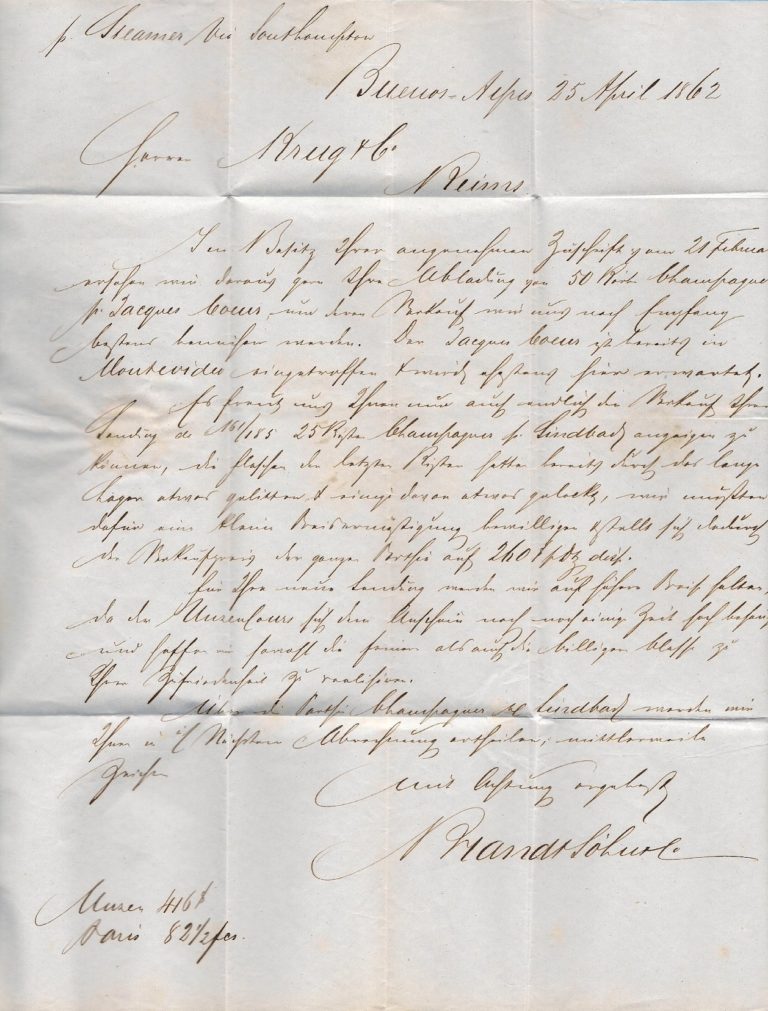 p. Steamer via Southampton
Buenos-Ayres 25 April 1862
Herren Krug & Co
Reims
Im Besitz Ihrer angenehmen Zuschrift vom 21 Februar
ersehen wir daraus gern Ihre Abladung von 50 Kist. Champagner
p. Jacques Coeur, um deren Verkauf wir uns nach Empfang
bestens bemühen werden. Der Jacques Coeur ist bereits in
Montevideo eingetroffen & wird ehestens hier erwartet.
Es freut uns Ihnen nun auch endlich den Verkauf Ihrer
Sendung de No 161/185 25 Kisten Champagner p. Lindbad anzeigen zu
können, die Flaschen der letzten Kisten hatten bereits durch das lange
Lagern etwas gelitten & einige davon etwas geleckt, wir mußten
dafür eine kleine Preisermäßigung bewilligen & stellt sich dadurch
der Verkaufpreis der ganzen Parthie auf 260 $ p. dz
Für Ihre neue Sendung werden wir auf höhere Preise halten,
da der Unzencours sich dem Anschein nach noch einige Zeit hoch
und hoffen wir sowohl die feinen als auch die billigen Classe zu
Ihrer Zufriedenheit zu realisiren.
Über die Parthie Champagner p Lindbad werden wir
Ihnen Nächsten Abrechnung ertheilen; mittlerweile
zeichnen
mit Achtung ergebenst
Söhne & Co
Unzen 416 $
Paris 82 1/2 fcs.